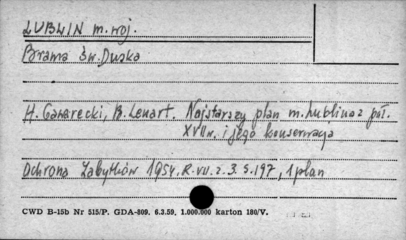 LUBLIN m. woj.
Brama Św. Duska
H. Gawarecki, B. Lenart. Najstarszy plan m. Lublina z poł.
XVII w. i jego konserwacja
Ochrona Zabytków 1954. R. VII. z. 3. s. 197, 1 plan
CWD B-15b Nr 515/P. GDA-809. 6.3.59. 1.000.000 karton 180/V.